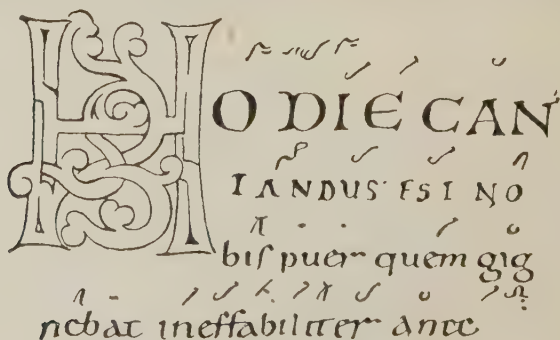 HODIE CAN
TANDUS EST NO
bis puer quem gig
nebat ineffabiliter ante